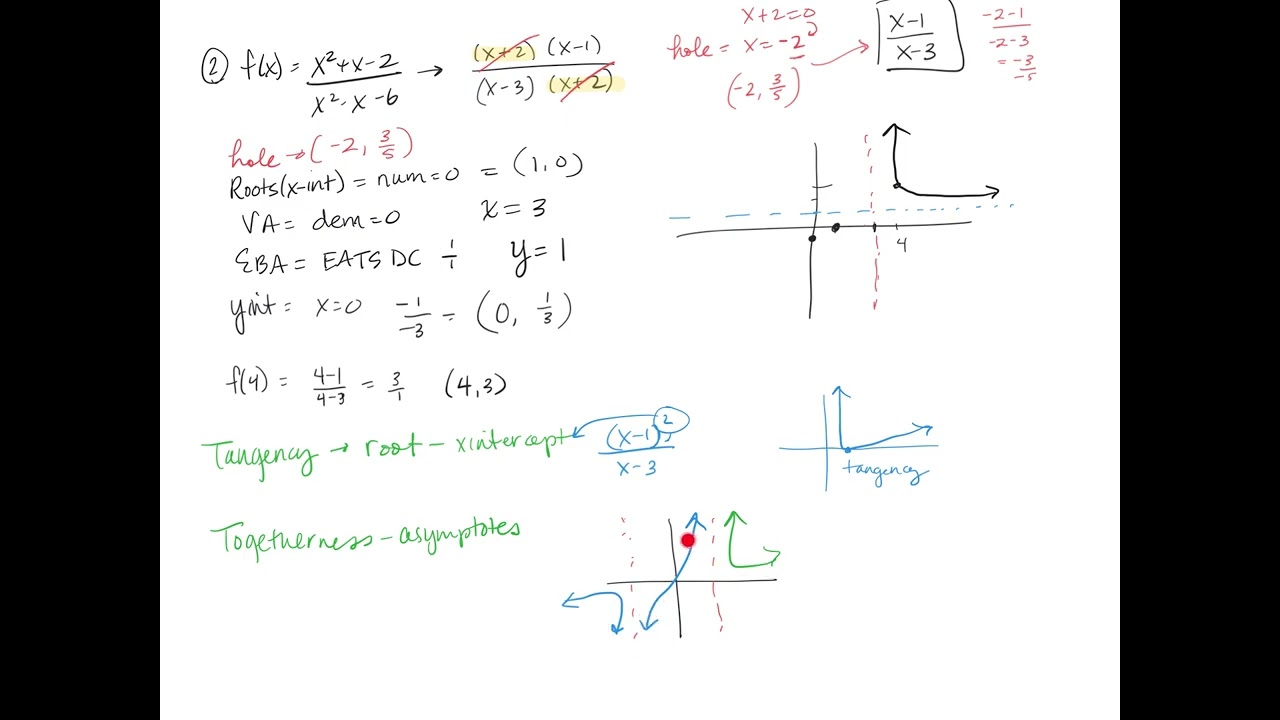 ② f(x) = x²+x-2 / x²-x-6 → (x+2)(x-1) / (x-3)(x+2)
x+2=0
hole = x=-2
(-2, 3/5)
x-1 / x-3
-2-1 / -2-3
= -3/-5
hole → (-2, 3/5)
Roots(x-int) = num=0 = (1,0)
VA = dem=0 x=3
EBA = EATS DC 1/1 y=1
yint = x=0 -1/-3 = (0, 1/3)
4
f(4) = 4-1 / 4-3 = 3/1 (4,3)
Tangency → root - xintercept (x-1)² / x-3
tangency
Togetherness - asymptotes